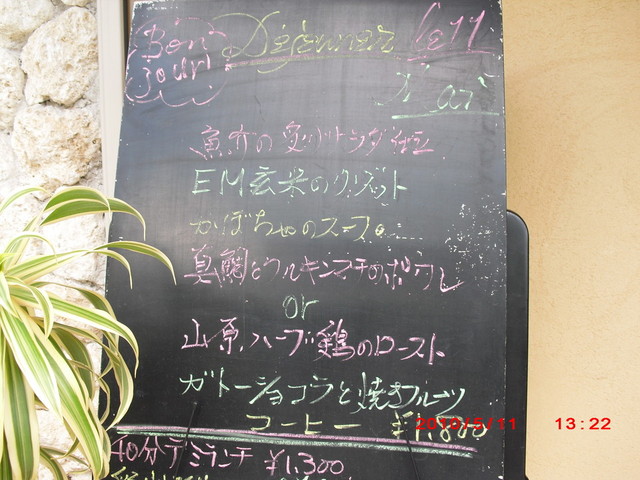 Bon Jour! Déjeuner le 11
Mai
魚介の炙りリトンダ仕立
EM玄米のリゾット
かぼちゃのスープ。
真鯛とウルキンマチのポワレ
or
山原ハーブ鶏のロースト
ガトーショコラと焼きフルーツ
コーヒー ¥1,800
40分デミランチ ¥1,300
2010/5/11 13:22